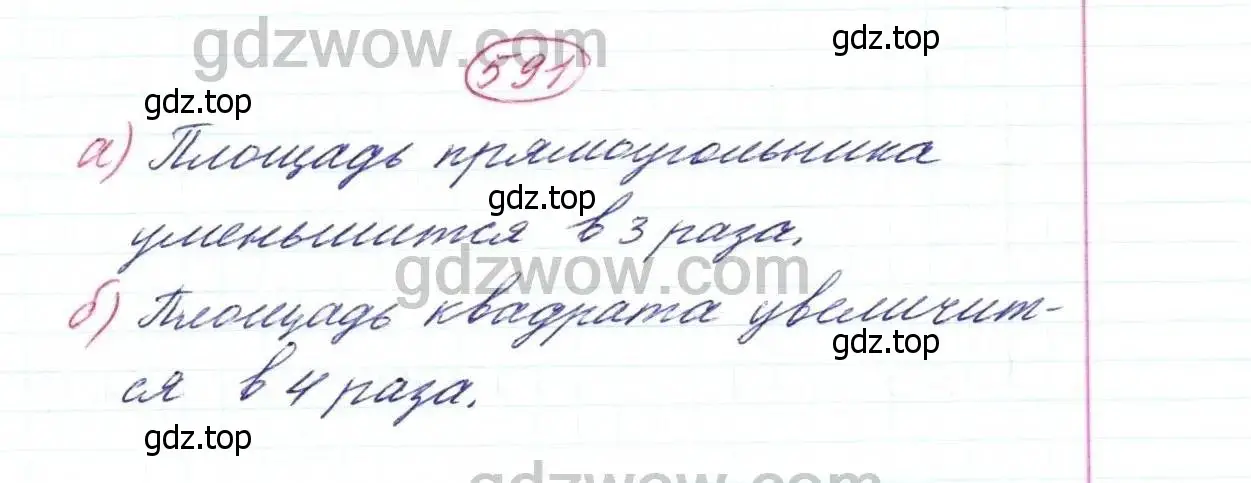 gdzwow.com
gdz.top
591
gdz.top
а) Площадь прямоугольника
gdz.top
уменьшится в 3 раза.
gdzwow.com
б) Площадь квадрата увеличит-
gdz.top
ся в 4 раза.
gdz.top
gdzwow.com